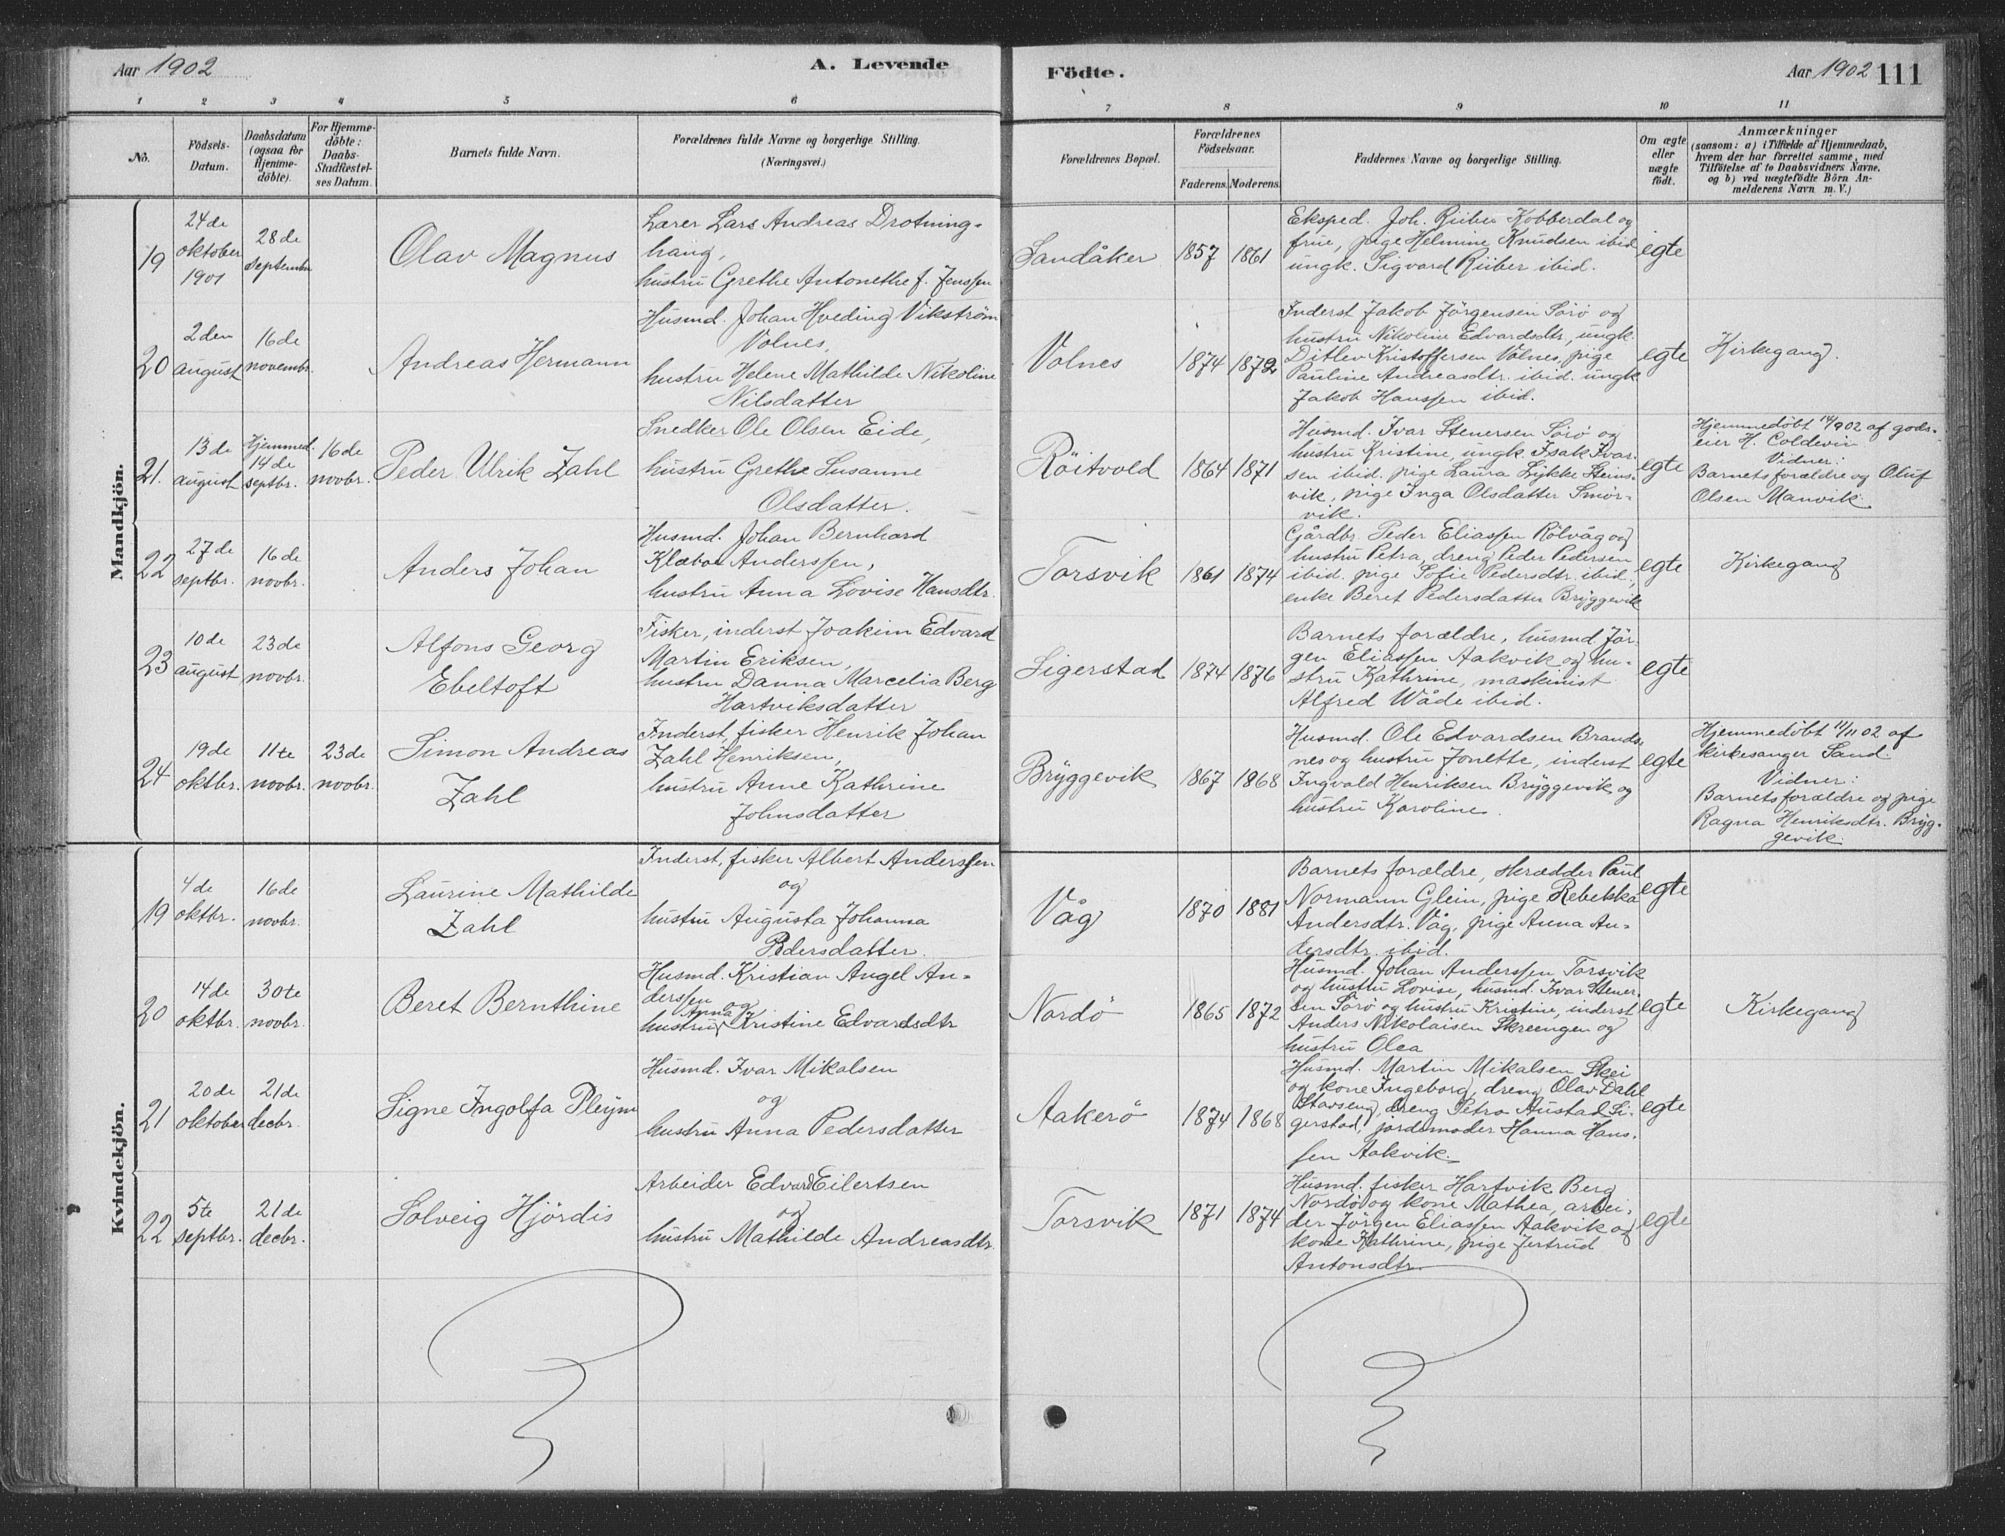 Aar 1902
A. Levende
Födte.
Aar 1902 111
1 2 3 4 5 6 7 8 9 10 11
No.
Födsels-
Datum.
Daabsdatum
(ogsaa for
Hjemme-
döbte).
For Hjemme-
döbte:
Daabs-
Stadfæstel-
ses Datum.
Barnets fulde Navn.
Forældrenes fulde Navne og borgerlige Stilling.
(Næringsvei.)
Forældrenes Bopæl.
Forældrenes
Födselsaar.
Faderens. Moderens.
Faddernes Navne og borgerlige Stilling.
Om ægte
eller
uægte
födt.
Anmærkninger
(saasom: a) i Tilfælde af Hjemmedaab,
hvem der har forrettet samme, med
Tilföielse af to Daabsvidners Navne,
og b) ved uægtefödte Börn An-
melderens Navn m. V.)
Mandkjön.
19
24de
oktober
1901
28de
septembr
Olav Magnus
Lærer Lars Andreas Drotning-
haug,
hustru Grethe Antonethe f. Jenssen
Sandåker
1857 1861
Eksped. Joh. Riiber Kobberdal og
frue, pige Helmine Knudsen ibid
ungk. Sigvard Riiber ibid.
egte
20
2den
august
16de
novembr.
Andreas Hermann
Husmd. Johan Hveding Vikström
Volnes,
hustru Helene Mathilde Nikoline
Nilsdatter
Volnes
1874 1872
Inderst Jakob Jörgensen Sörö og
hustru Nikoline Edvardsdtr, ungk.
Ditlev Kristoffersen Volnes, pige
Pauline Andreasdtr. ibid. ungk
Jakob Hanssen ibid.
egte
Kirkegang.
21.
13de
august
Hjemmed.
14de
septbr.
16de
novbr.
Peder Ulrik Zahl
Snedker Ole Olsen Eide,
hustru Grethe Susanne
Olsdatter.
Röitvold
1864 1871
Husmd. Ivar Stenersen Sörö og
hustru Kristine, ungk. Isak Ivar-
sen ibid. pige Laura Lykke Steins-
vik, pige Inga Olsdatter Smör-
vik.
egte
Hjemmedöbt 14/9 02 af gods-
eier H. Coldevin
Vidner:
Barnets forældre og Oluf
Olsen Manvik.
22
27de
septbr.
16de
novbr.
Anders Johan
Husmd. Johan Bernhard
Klæboe Anderssen,
hustru Anna Lovise Hansdtr.
Torsvik
1861 1874
Gårdbr. Peder Eliassen Rölvåg og
hustru Petra, dreng Peder Pedersen
ibid. pige Sofie Pedersdtr. ibid.,
enke Beret Pedersdatter Bryggevik
egte
Kirkegang
23
10de
august
23de
novbr.
Alfons Georg
Ebeltoft
Fisker, inderst Joakim Edvard
Martin Eriksen,
hustru Danna Marcelia Berg
Hartviksdatter
Sigerstad
1874 1876
Barnets forældre, husmd. Jör-
gen Eliassen Aakvik og hu-
stru Kathrine, maskinist
Alfred Wåde ibid.
egte
24
19de
oktbr.
11te
novbr.
23de
novbr.
Simon Andreas
Zahl
Inderst, fisker Henrik Johan
Zahl Henriksen,
hustru Anne Kathrine
Johnsdatter
Bryggevik
1867 1868
Husmd. Ole Edvardsen Brands-
nes og hustru Jonette, inderst
Ingvald Henriksen Bryggevik og
hustru Karoline.
egte
Hjemmedöbt 11/11 02 af
kirkesanger Sand.
Vidner:
Barnets forældre og pige
Ragna Henriksdtr. Bryg-
gevik.
Kvindekjön.
19
4de
oktbr.
16de
novbr.
Laurine Mathilde
Zahl
Inderst, fisker Albert Anderssen
og
hustru Augusta Johanna
Pedersdatter.
Våg
1870 1881
Barnets forældre, skrædder Paul
Normann Glein, pige Rebekka
Andersdtr. Våg, pige Anna An-
dersdtr. ibid.
egte
20
14de
oktbr.
30te
novbr.
Beret Bernthine
Husmd. Kristian Angel An-
derssen
og
hustru Anna Kristine Edvardsdtr
Nordö
1865 1872
Husmd. Johan Anderssen Torsvik
og hustru Lovise, husmd. Ivar Stener-
sen Sörö og hustru Kristine, inderst
Anders Nikolaisen Skreengen og
hustru Olea
egte
Kirkegang
21
20de
oktober
21de
decbr.
Signe Ingolfa Pleym
Husmd. Ivar Mikalsen
og
hustru Anna Pedersdatter
Aakerö
1874 1868
Husmd. Martin Mikalsen Skei
og kone Ingeborg, dreng Olav Dahl
Stavseng, dreng Petra Austad Si-
gerstad, jordemoder Hanna Hans-
sen Aakvik.
egte
22
5te
septbr.
21de
decbr.
Solveig Hjördis
Arbeider Edvard Eilertsen
og
hustru Mathilde Andreasdtr.
Torsvik
1871 1874
Husmd. fisker Hartvik Berg
Nordö og kone Mathea, arbei-
der Jörgen Eliassen Aakvik og
kone Kathrine, pige Jertrud
Antonsdtr.
egte